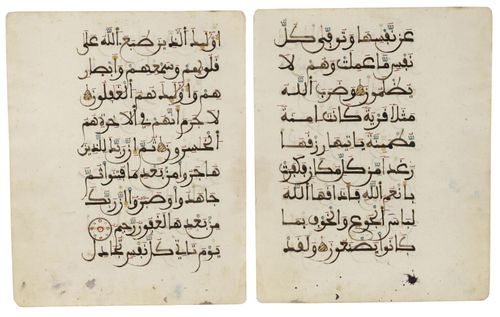 أوليك الذين طبع الله على
قلوبهم وسمعهم وأبصر
هم وأوليك هم الغفلون
لا جرم أنهم في الأخرة هم
الخسرون ثم إن ربك للذين
هجروا من بعد ما فتنوا ثم
جهدوا وصبروا إن ربك
من بعدها لغفور رحيم
يوم تاتي كل نفس تجدل
عن نفسها وتوفى كل
نفس ما عملت وهم لا
يظلمون وضرب الله
مثلا قرية كانت امنة
مطمئنة ياتيها رزقها
رغدا من كل مكان فكفرت
بأنعم الله فأذقها الله
لباس الجوع والخوف بما
كانوا يصنعون ولقد